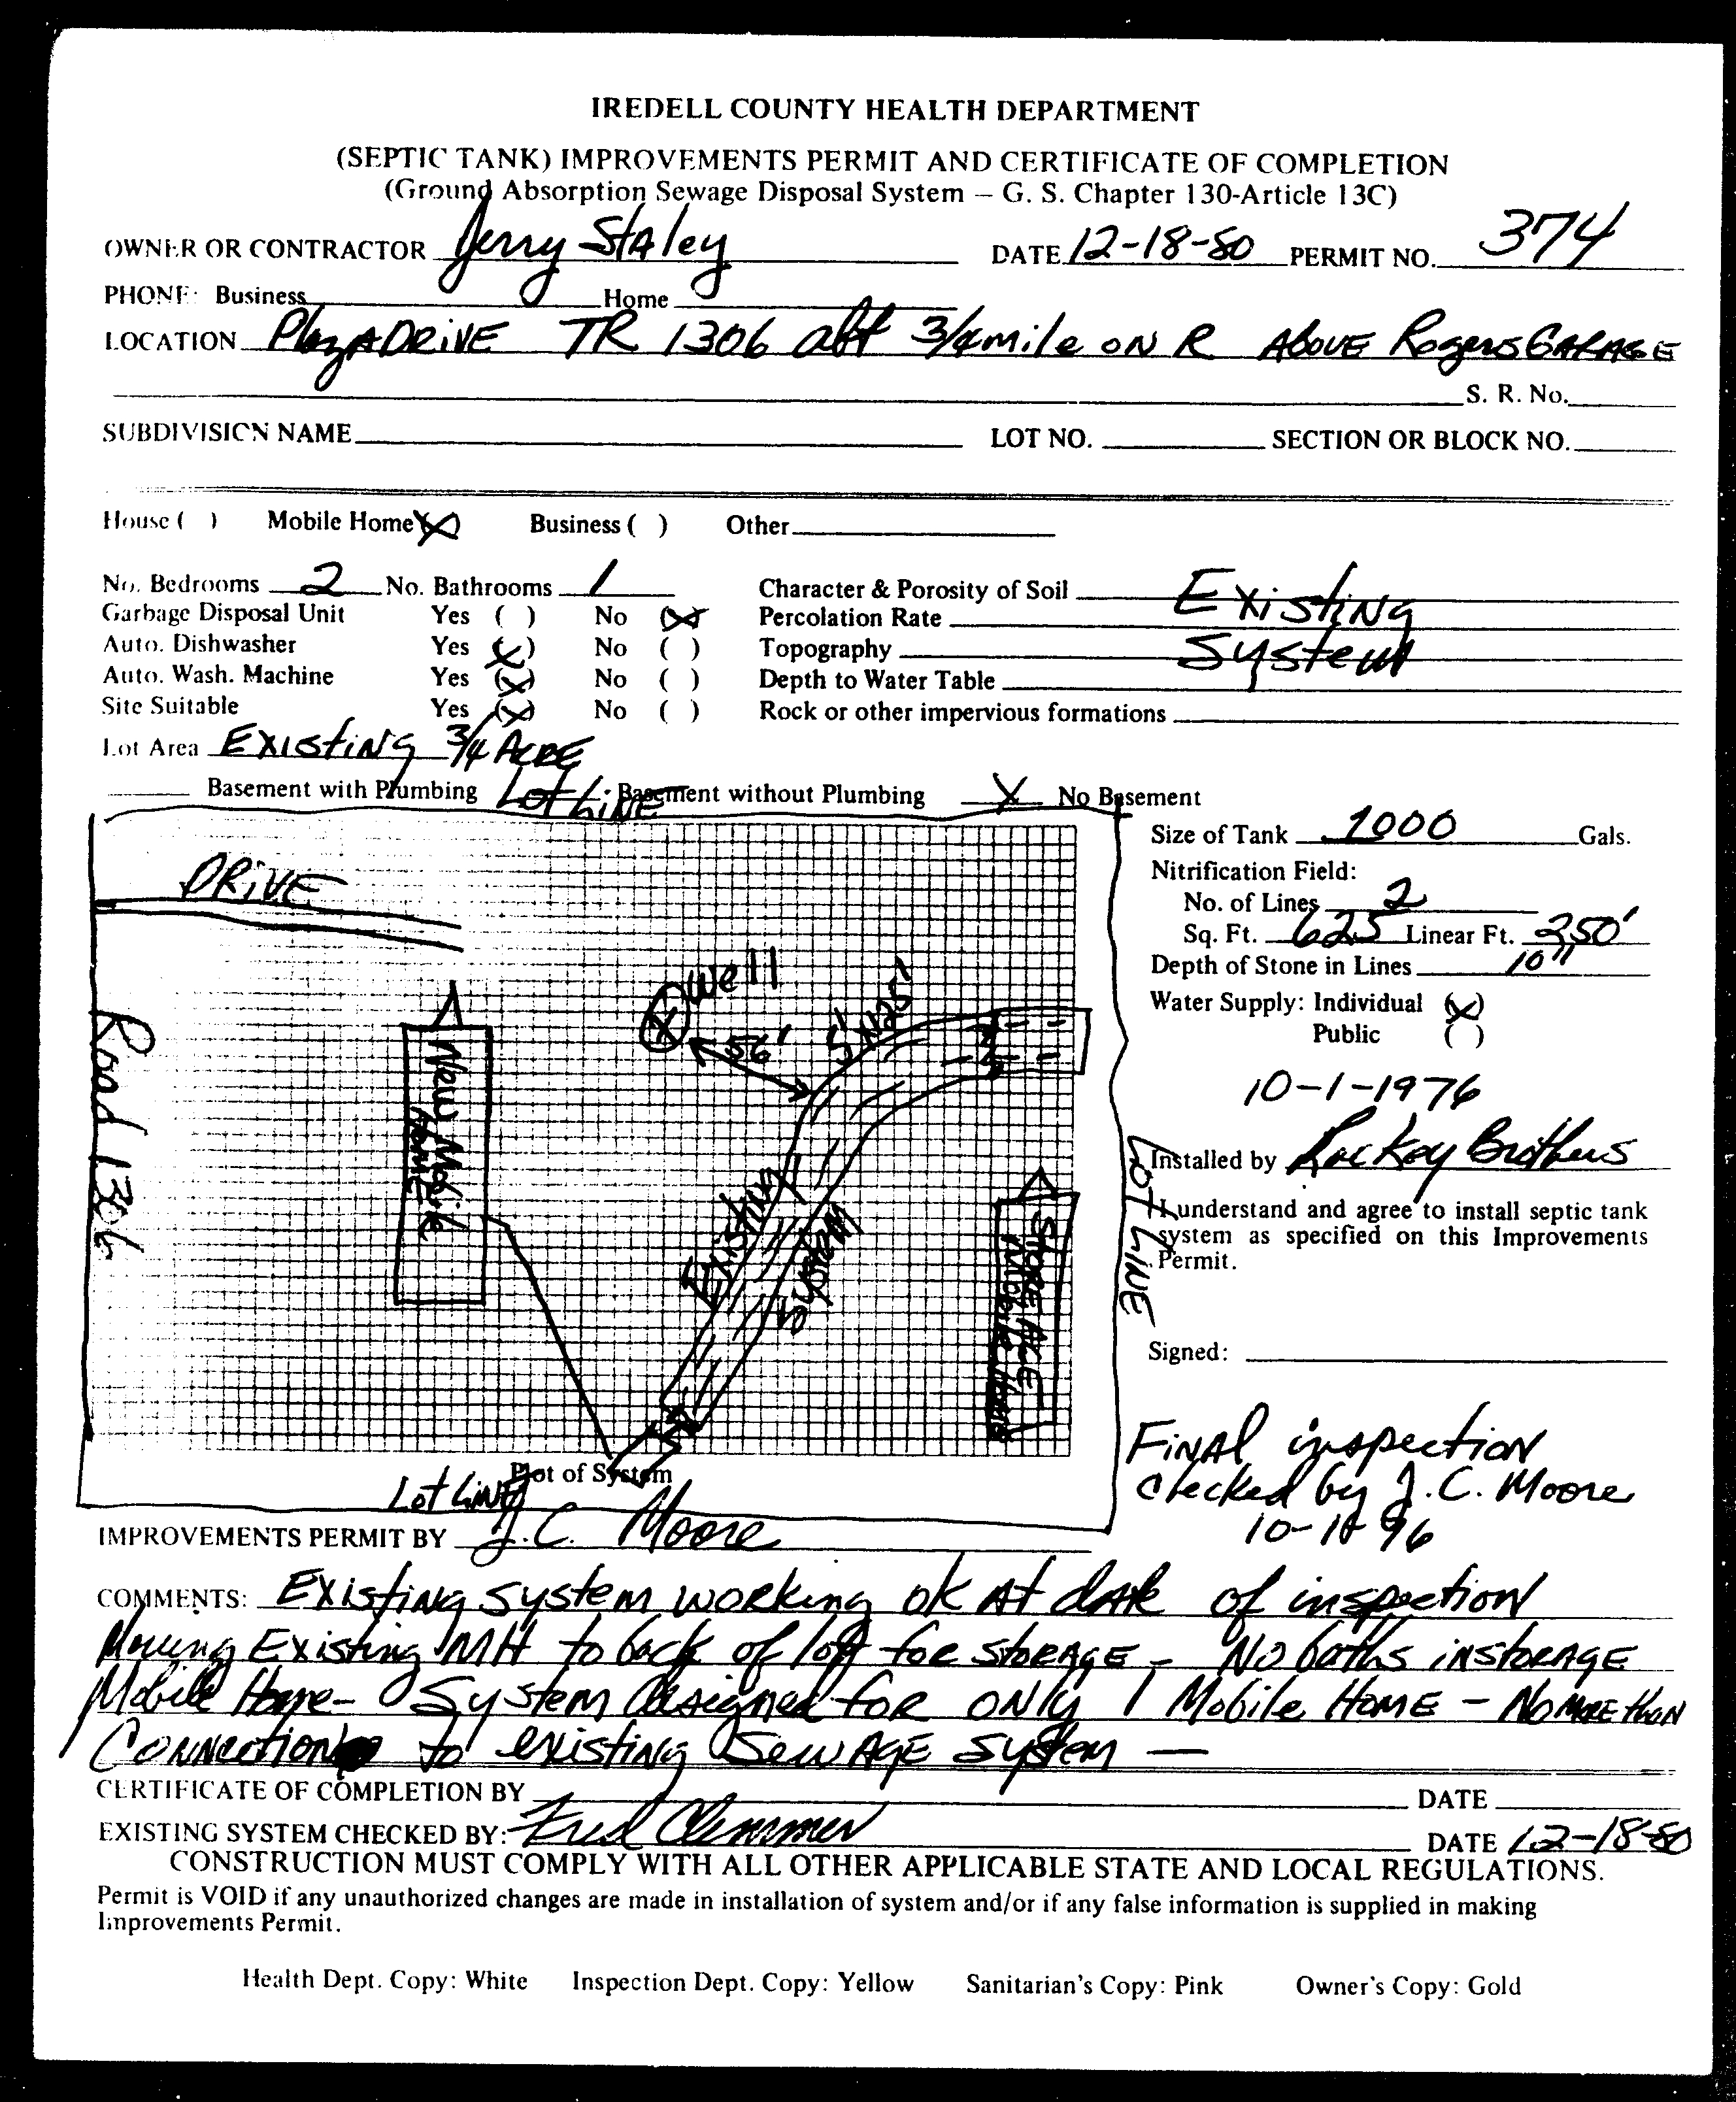 IREDELL COUNTY HEALTH DEPARTMENT
(SEPTIC TANK) IMPROVEMENTS PERMIT AND CERTIFICATE OF COMPLETION
(Ground Absorption Sewage Disposal System — G. S. Chapter 130-Article 13C)
OWNER OR CONTRACTOR Jerry Staley DATE 12-18-80 PERMIT NO. 374
PHONE: Business Home
LOCATION Plaza DRIVE TR 1306 aft 3/4 mile ON R ABOVE Rogers GARAGE
S. R. No.
SUBDIVISION NAME LOT NO. SECTION OR BLOCK NO.
House ( ) Mobile Home (X) Business ( ) Other
No. Bedrooms 2 No. Bathrooms 1 Character & Porosity of Soil Existing
Garbage Disposal Unit Yes ( ) No (X) Percolation Rate
Auto. Dishwasher Yes (X) No ( ) Topography System
Auto. Wash. Machine Yes (X) No ( ) Depth to Water Table
Site Suitable Yes (X) No ( ) Rock or other impervious formations
Lot Area EXISTING 3/4 ACRE
Basement with Plumbing Basement without Plumbing X No Basement
Lot LINE
DRIVE
Well
56'
5'
N25'
Road 1306
New Mobile Home
Existing
STORAGE Mobile Home
LOT LINE
Lot LINE
Plot of System
Size of Tank 1000 Gals.
Nitrification Field:
No. of Lines 2
Sq. Ft. 625 Linear Ft. 250'
Depth of Stone in Lines 10"
Water Supply: Individual (X)
Public ( )
10-1-1976
Installed by Lackey Brothers
I understand and agree to install septic tank
system as specified on this Improvements
Permit.
Signed:
FINAl inspection
checked by J.C. Moore
IMPROVEMENTS PERMIT BY J.C. Moore
COMMENTS: Existing system working ok At date of inspection
Moving Existing MH to back of lot for STORAGE - No baths in STORAGE
Mobile Home - System designed for ONly 1 Mobile HOME - No MORE thAN
1 Connection to existing Sewage System —
CERTIFICATE OF COMPLETION BY DATE
EXISTING SYSTEM CHECKED BY: Fred Clemmer DATE 12-18-80
CONSTRUCTION MUST COMPLY WITH ALL OTHER APPLICABLE STATE AND LOCAL REGULATIONS.
Permit is VOID if any unauthorized changes are made in installation of system and/or if any false information is supplied in making
Improvements Permit.
Health Dept. Copy: White Inspection Dept. Copy: Yellow Sanitarian's Copy: Pink Owner's Copy: Gold